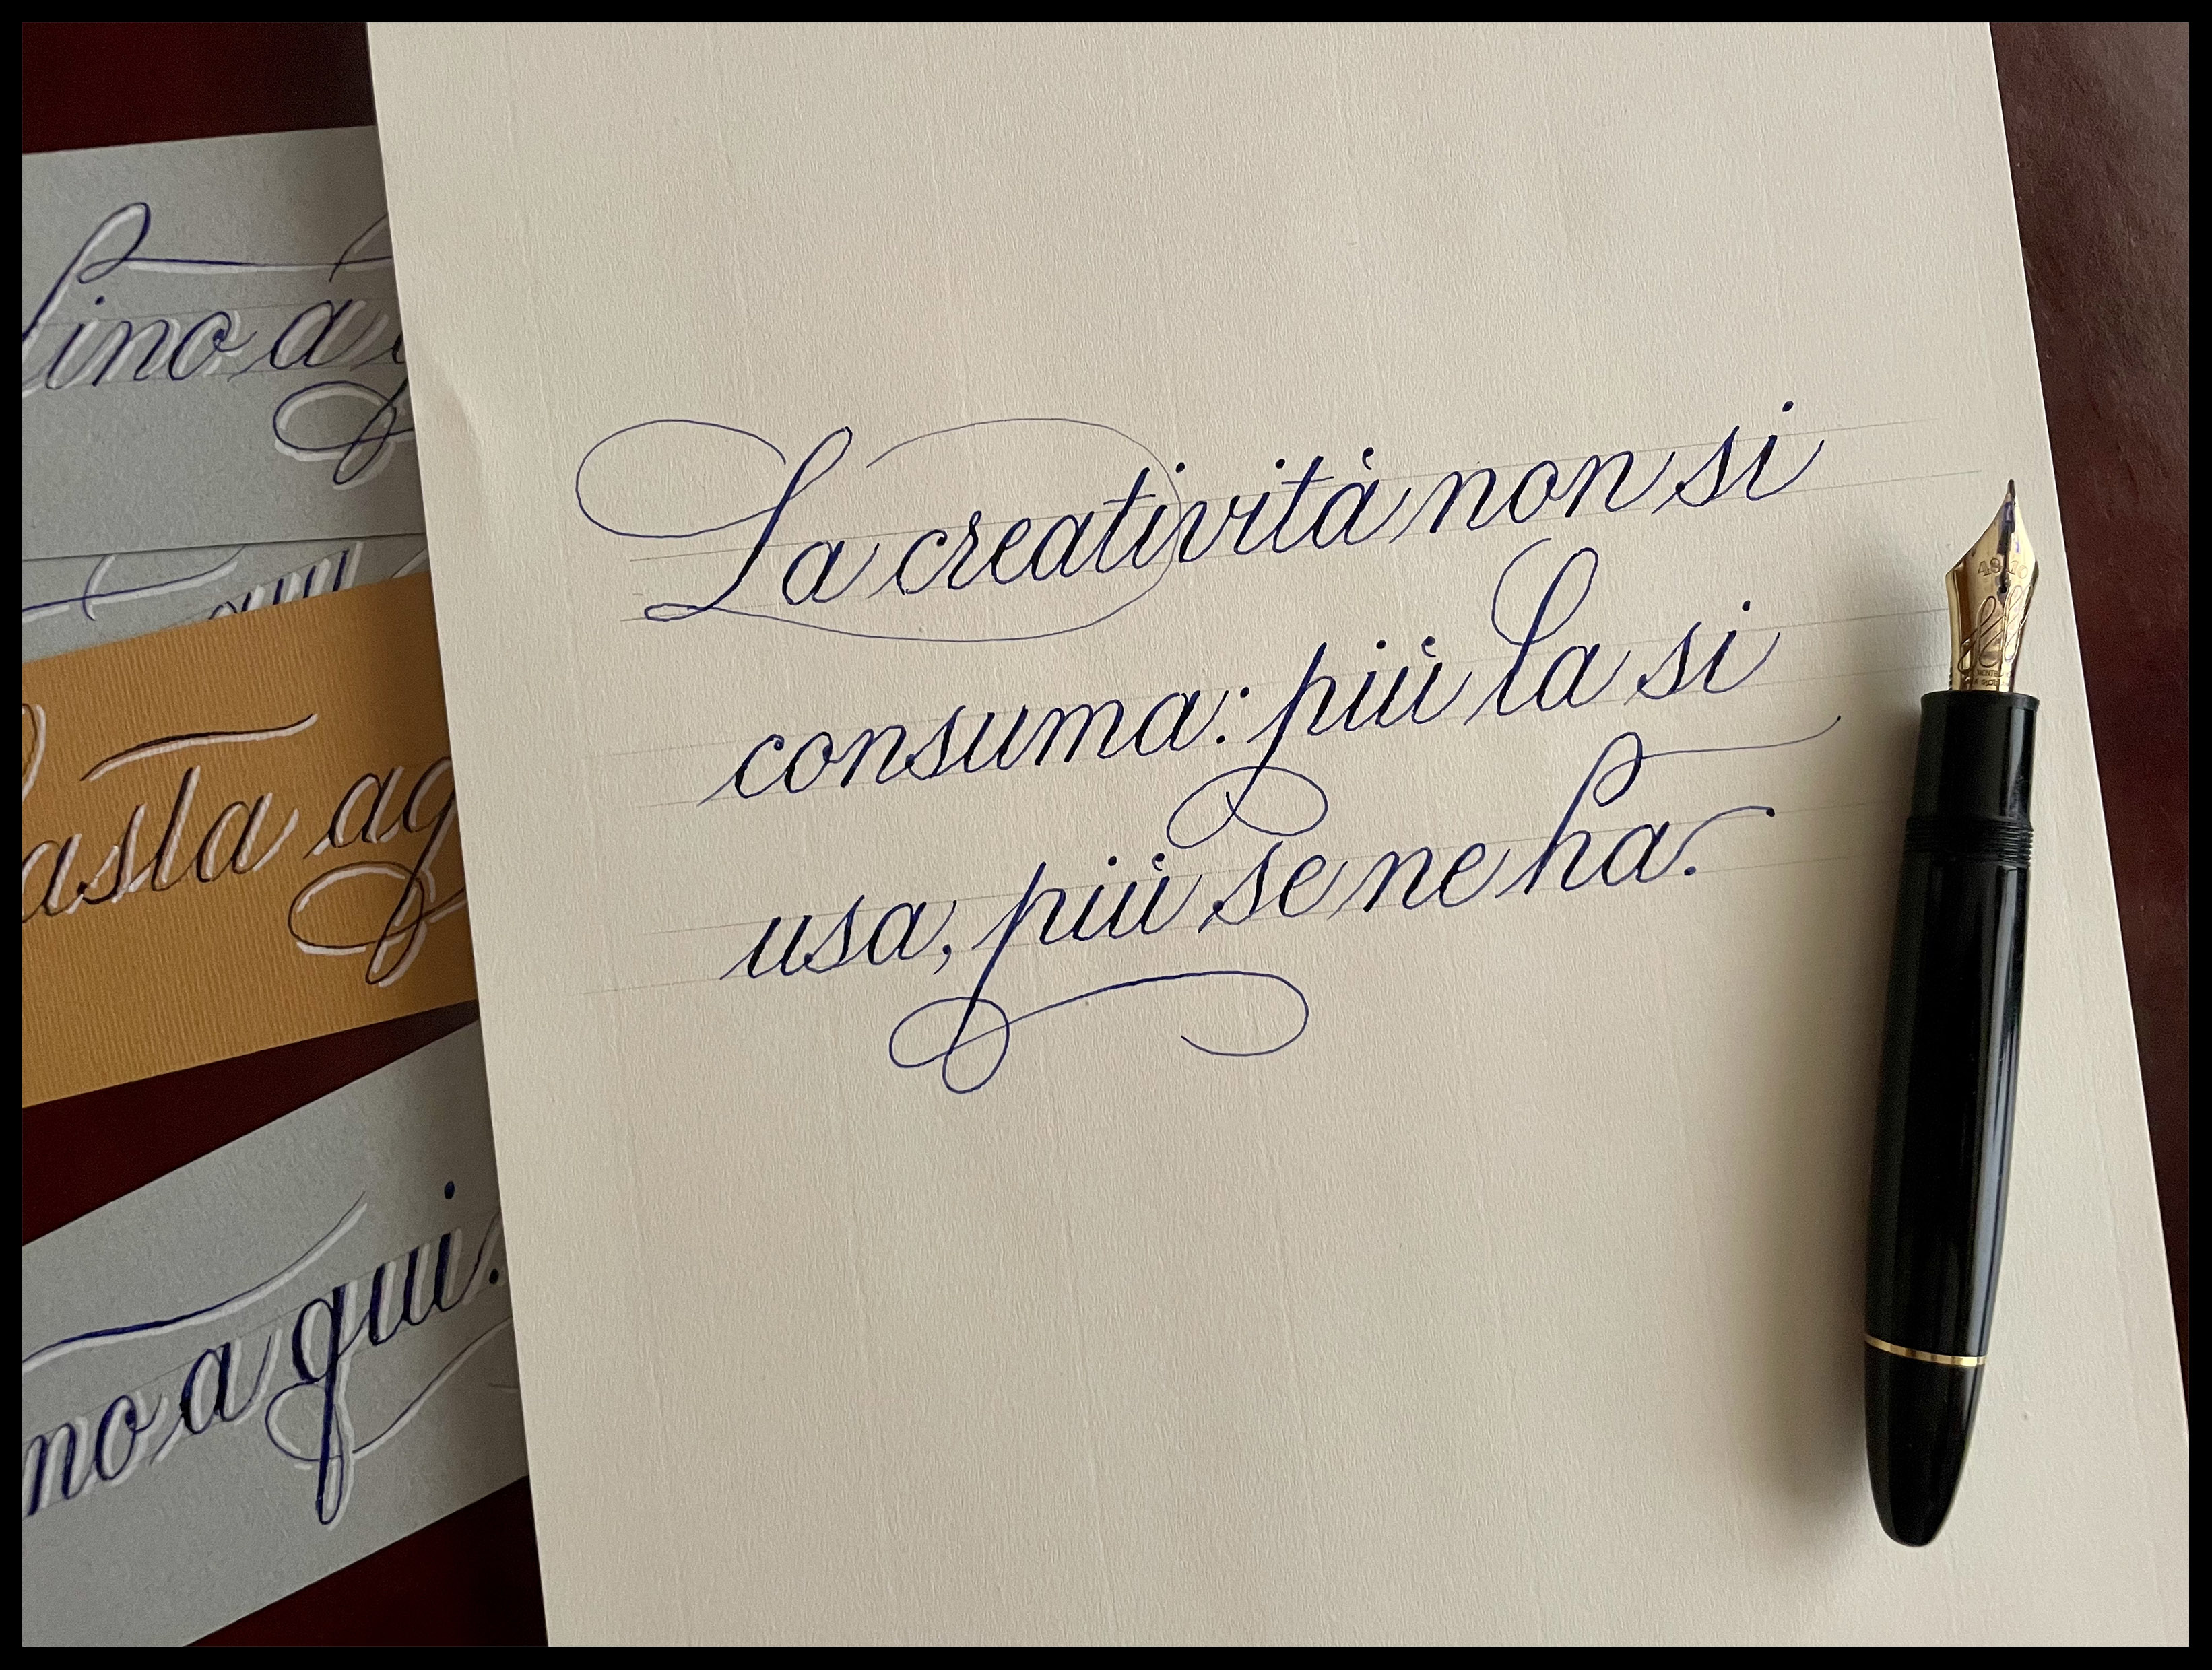 La creatività non si
consuma: più la si
usa, più se ne ha.
ino a
asta ag
no a qui.
4810